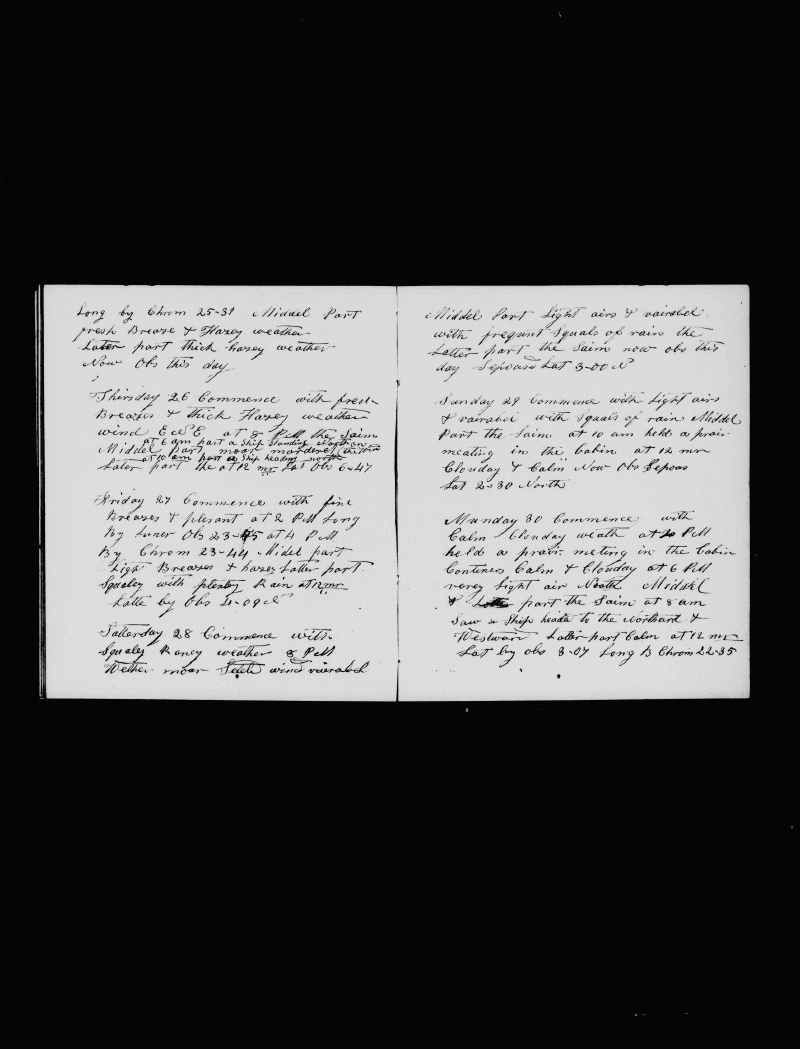 Long by Chrom 25-31 Middel Part
fresh Breaze & Hazey weather
Later part thick hazey weather
Now Obs this day
Thirsday 26 Commence with fresh
Breazes & thick Hazey weather
wind E at 8 PM the Saim
at 6 am part a Ship Standing North
Middel part moar moderet
at 10 am part a Ship heading north
Later part the at 12 mr Lat Obs 6-47
Friday 27 Commence with fine
Breazes & plesant at 2 PM Long
by Luner Obs 23-45 at 4 PM
By Chrom 23-44 Midel part
Light Breazes & hazey Latter part
Squaley with plenty Rain at 12 mr
Latte by Obs 4-09 N
Satterday 28 Commence with
Squaley Raney weather 8 PM
Wether moar wind vairabel
Middel Part Light airs & vairabel
with frequnt Squals of rain the
Latter part the Saim now obs this
day Sepoased Lat 3-00 N
Sunday 29 Commence with Light airs
& vairabel with squals of rain Middel
Part the Saim at 10 am held a prair
meating in the Cabin at 12 mr
Clouday & Calm Now Obs Sepoas
Lat 2-30 North
Munday 30 Commence with
Calm Clouday weath at 2 PM
held a prair meting in the Cabin
Contines Calm & Clouday at 6 PM
verey Light air North Middel
& Latter part the Saim at 8 am
Saw a Ship heade to the Northard &
Westward Latter part Calm at 12 mr
Lat by obs 3-07 Long B Chrom 22-35